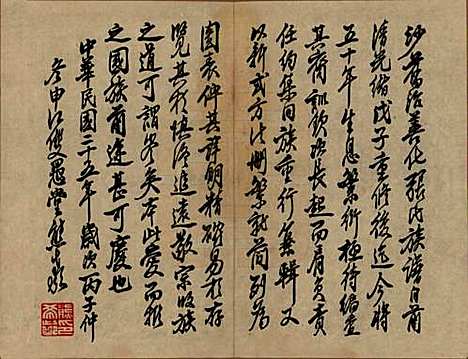 善化張氏族譜自前
清光緒戊子重修後迄今將
五十年生息繁衍極待編查
其裔訓欽家長起而肩負責
任約集同族重行纂輯又
以新式方法刪繁就簡列為
圖表俾其詳明精確易於存
覽其於慎終追遠敬宗收族
之道可謂榮矣本此愛而推
之國族前途甚可慶也
中華民國二十五年歲次丙子仲
冬申江雙忍堂熊